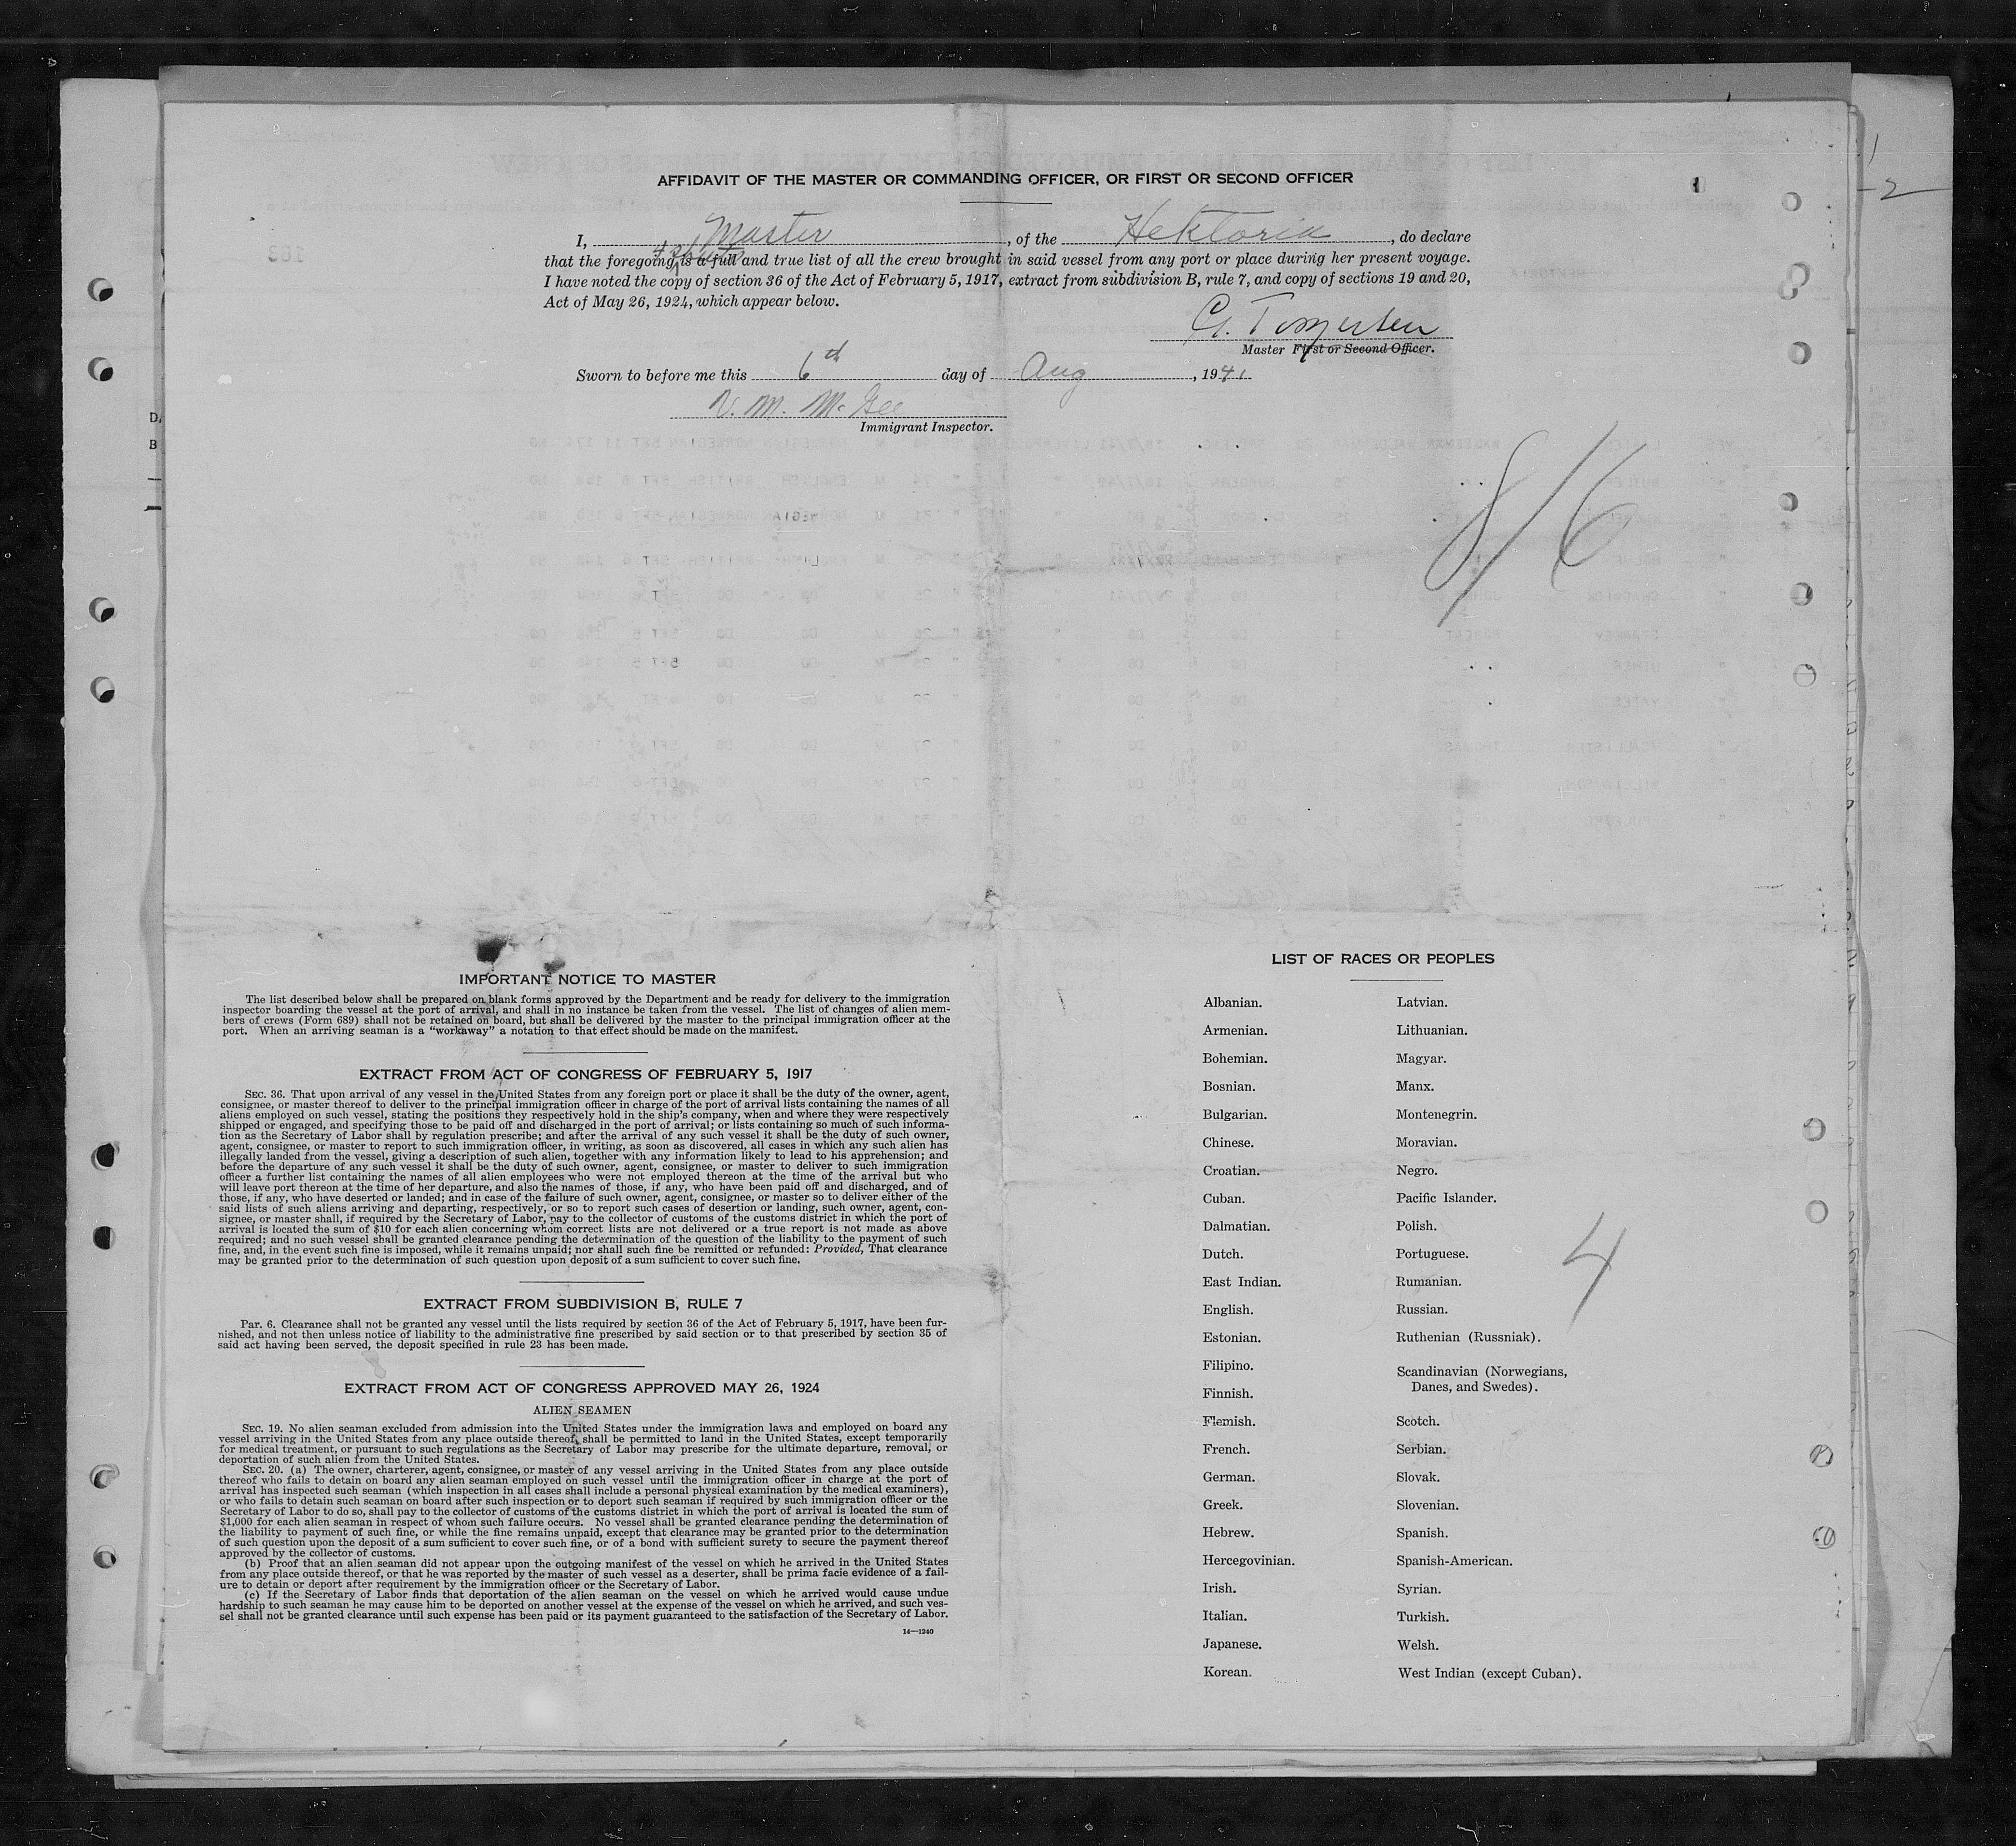 AFFIDAVIT OF THE MASTER OR COMMANDING OFFICER, OR FIRST OR SECOND OFFICER
I, Master, of the Hektoria, do declare
4 sheets
that the foregoing is a full and true list of all the crew brought in said vessel from any port or place during her present voyage.
I have noted the copy of section 36 of the Act of February 5, 1917, extract from subdivision B, rule 7, and copy of sections 19 and 20,
Act of May 26, 1924, which appear below.
Master First or Second Officer.
Sworn to before me this 6th day of Aug, 1941
V. M. McGee
Immigrant Inspector.
8/6
IMPORTANT NOTICE TO MASTER
The list described below shall be prepared on blank forms approved by the Department and be ready for delivery to the immigration
inspector boarding the vessel at the port of arrival, and shall in no instance be taken from the vessel. The list of changes of alien mem-
bers of crews (Form 689) shall not be retained on board, but shall be delivered by the master to the principal immigration officer at the
port. When an arriving seaman is a "workaway" a notation to that effect should be made on the manifest.
EXTRACT FROM ACT OF CONGRESS OF FEBRUARY 5, 1917
SEC. 36. That upon arrival of any vessel in the United States from any foreign port or place it shall be the duty of the owner, agent,
consignee, or master thereof to deliver to the principal immigration officer in charge of the port of arrival lists containing the names of all
aliens employed on such vessel, stating the positions they respectively hold in the ship's company, when and where they were respectively
shipped or engaged, and specifying those to be paid off and discharged in the port of arrival; or lists containing so much of such informa-
tion as the Secretary of Labor shall by regulation prescribe; and after the arrival of any such vessel it shall be the duty of such owner,
agent, consignee, or master to report to such immigration officer, in writing, as soon as discovered, all cases in which any such alien has
illegally landed from the vessel, giving a description of such alien, together with any information likely to lead to his apprehension; and
before the departure of any such vessel it shall be the duty of such owner, agent, consignee, or master to deliver to such immigration
officer a further list containing the names of all alien employees who were not employed thereon at the time of the arrival but who
will leave port thereon at the time of her departure, and also the names of those, if any, who have been paid off and discharged, and of
those, if any, who have deserted or landed; and in case of the failure of such owner, agent, consignee, or master so to deliver either of the
said lists of such aliens arriving and departing, respectively, or so to report such cases of desertion or landing, such owner, agent, con-
signee, or master shall, if required by the Secretary of Labor, pay to the collector of customs of the customs district in which the port of
arrival is located the sum of $10 for each alien concerning whom correct lists are not delivered or a true report is not made as above
required; and no such vessel shall be granted clearance pending the determination of the question of the liability to the payment of such
fine, and, in the event such fine is imposed, while it remains unpaid; nor shall such fine be remitted or refunded: Provided, That clearance
may be granted prior to the determination of such question upon deposit of a sum sufficient to cover such fine.
EXTRACT FROM SUBDIVISION B, RULE 7
Par. 6. Clearance shall not be granted any vessel until the lists required by section 36 of the Act of February 5, 1917, have been fur-
nished, and not then unless notice of liability to the administrative fine prescribed by said section or to that prescribed by section 35 of
said act having been served, the deposit specified in rule 23 has been made.
EXTRACT FROM ACT OF CONGRESS APPROVED MAY 26, 1924
ALIEN SEAMEN
SEC. 19. No alien seaman excluded from admission into the United States under the immigration laws and employed on board any
vessel arriving in the United States from any place outside thereof, shall be permitted to land in the United States, except temporarily
for medical treatment, or pursuant to such regulations as the Secretary of Labor may prescribe for the ultimate departure, removal, or
deportation of such alien from the United States.
SEC. 20. (a) The owner, charterer, agent, consignee, or master of any vessel arriving in the United States from any place outside
thereof who fails to detain on board any alien seaman employed on such vessel until the immigration officer in charge at the port of
arrival has inspected such seaman (which inspection in all cases shall include a personal physical examination by the medical examiners),
or who fails to detain such seaman on board after such inspection or to deport such seaman if required by such immigration officer or the
Secretary of Labor to do so, shall pay to the collector of customs of the customs district in which the port of arrival is located the sum of
$1,000 for each alien seaman in respect of whom such failure occurs. No vessel shall be granted clearance pending the determination of
the liability to payment of such fine, or while the fine remains unpaid, except that clearance may be granted prior to the determination
of such question upon the deposit of a sum sufficient to cover such fine, or of a bond with sufficient surety to secure the payment thereof
approved by the collector of customs.
(b) Proof that an alien seaman did not appear upon the outgoing manifest of the vessel on which he arrived in the United States
from any place outside thereof, or that he was reported by the master of such vessel as a deserter, shall be prima facie evidence of a fail-
ure to detain or deport after requirement by the immigration officer or the Secretary of Labor.
(c) If the Secretary of Labor finds that deportation of the alien seaman on the vessel on which he arrived would cause undue
hardship to such seaman he may cause him to be deported on another vessel at the expense of the vessel on which he arrived, and such ves-
sel shall not be granted clearance until such expense has been paid or its payment guaranteed to the satisfaction of the Secretary of Labor.
14—1240
LIST OF RACES OR PEOPLES
Albanian.
Armenian.
Bohemian.
Bosnian.
Bulgarian.
Chinese.
Croatian.
Cuban.
Dalmatian.
Dutch.
East Indian.
English.
Estonian.
Filipino.
Finnish.
Flemish.
French.
German.
Greek.
Hebrew.
Hercegovinian.
Irish.
Italian.
Japanese.
Korean.
Latvian.
Lithuanian.
Magyar.
Manx.
Montenegrin.
Moravian.
Negro.
Pacific Islander.
Polish.
Portuguese.
Rumanian.
Russian.
Ruthenian (Russniak).
Scandinavian (Norwegians,
Danes, and Swedes).
Scotch.
Serbian.
Slovak.
Slovenian.
Spanish.
Spanish-American.
Syrian.
Turkish.
Welsh.
West Indian (except Cuban).
4